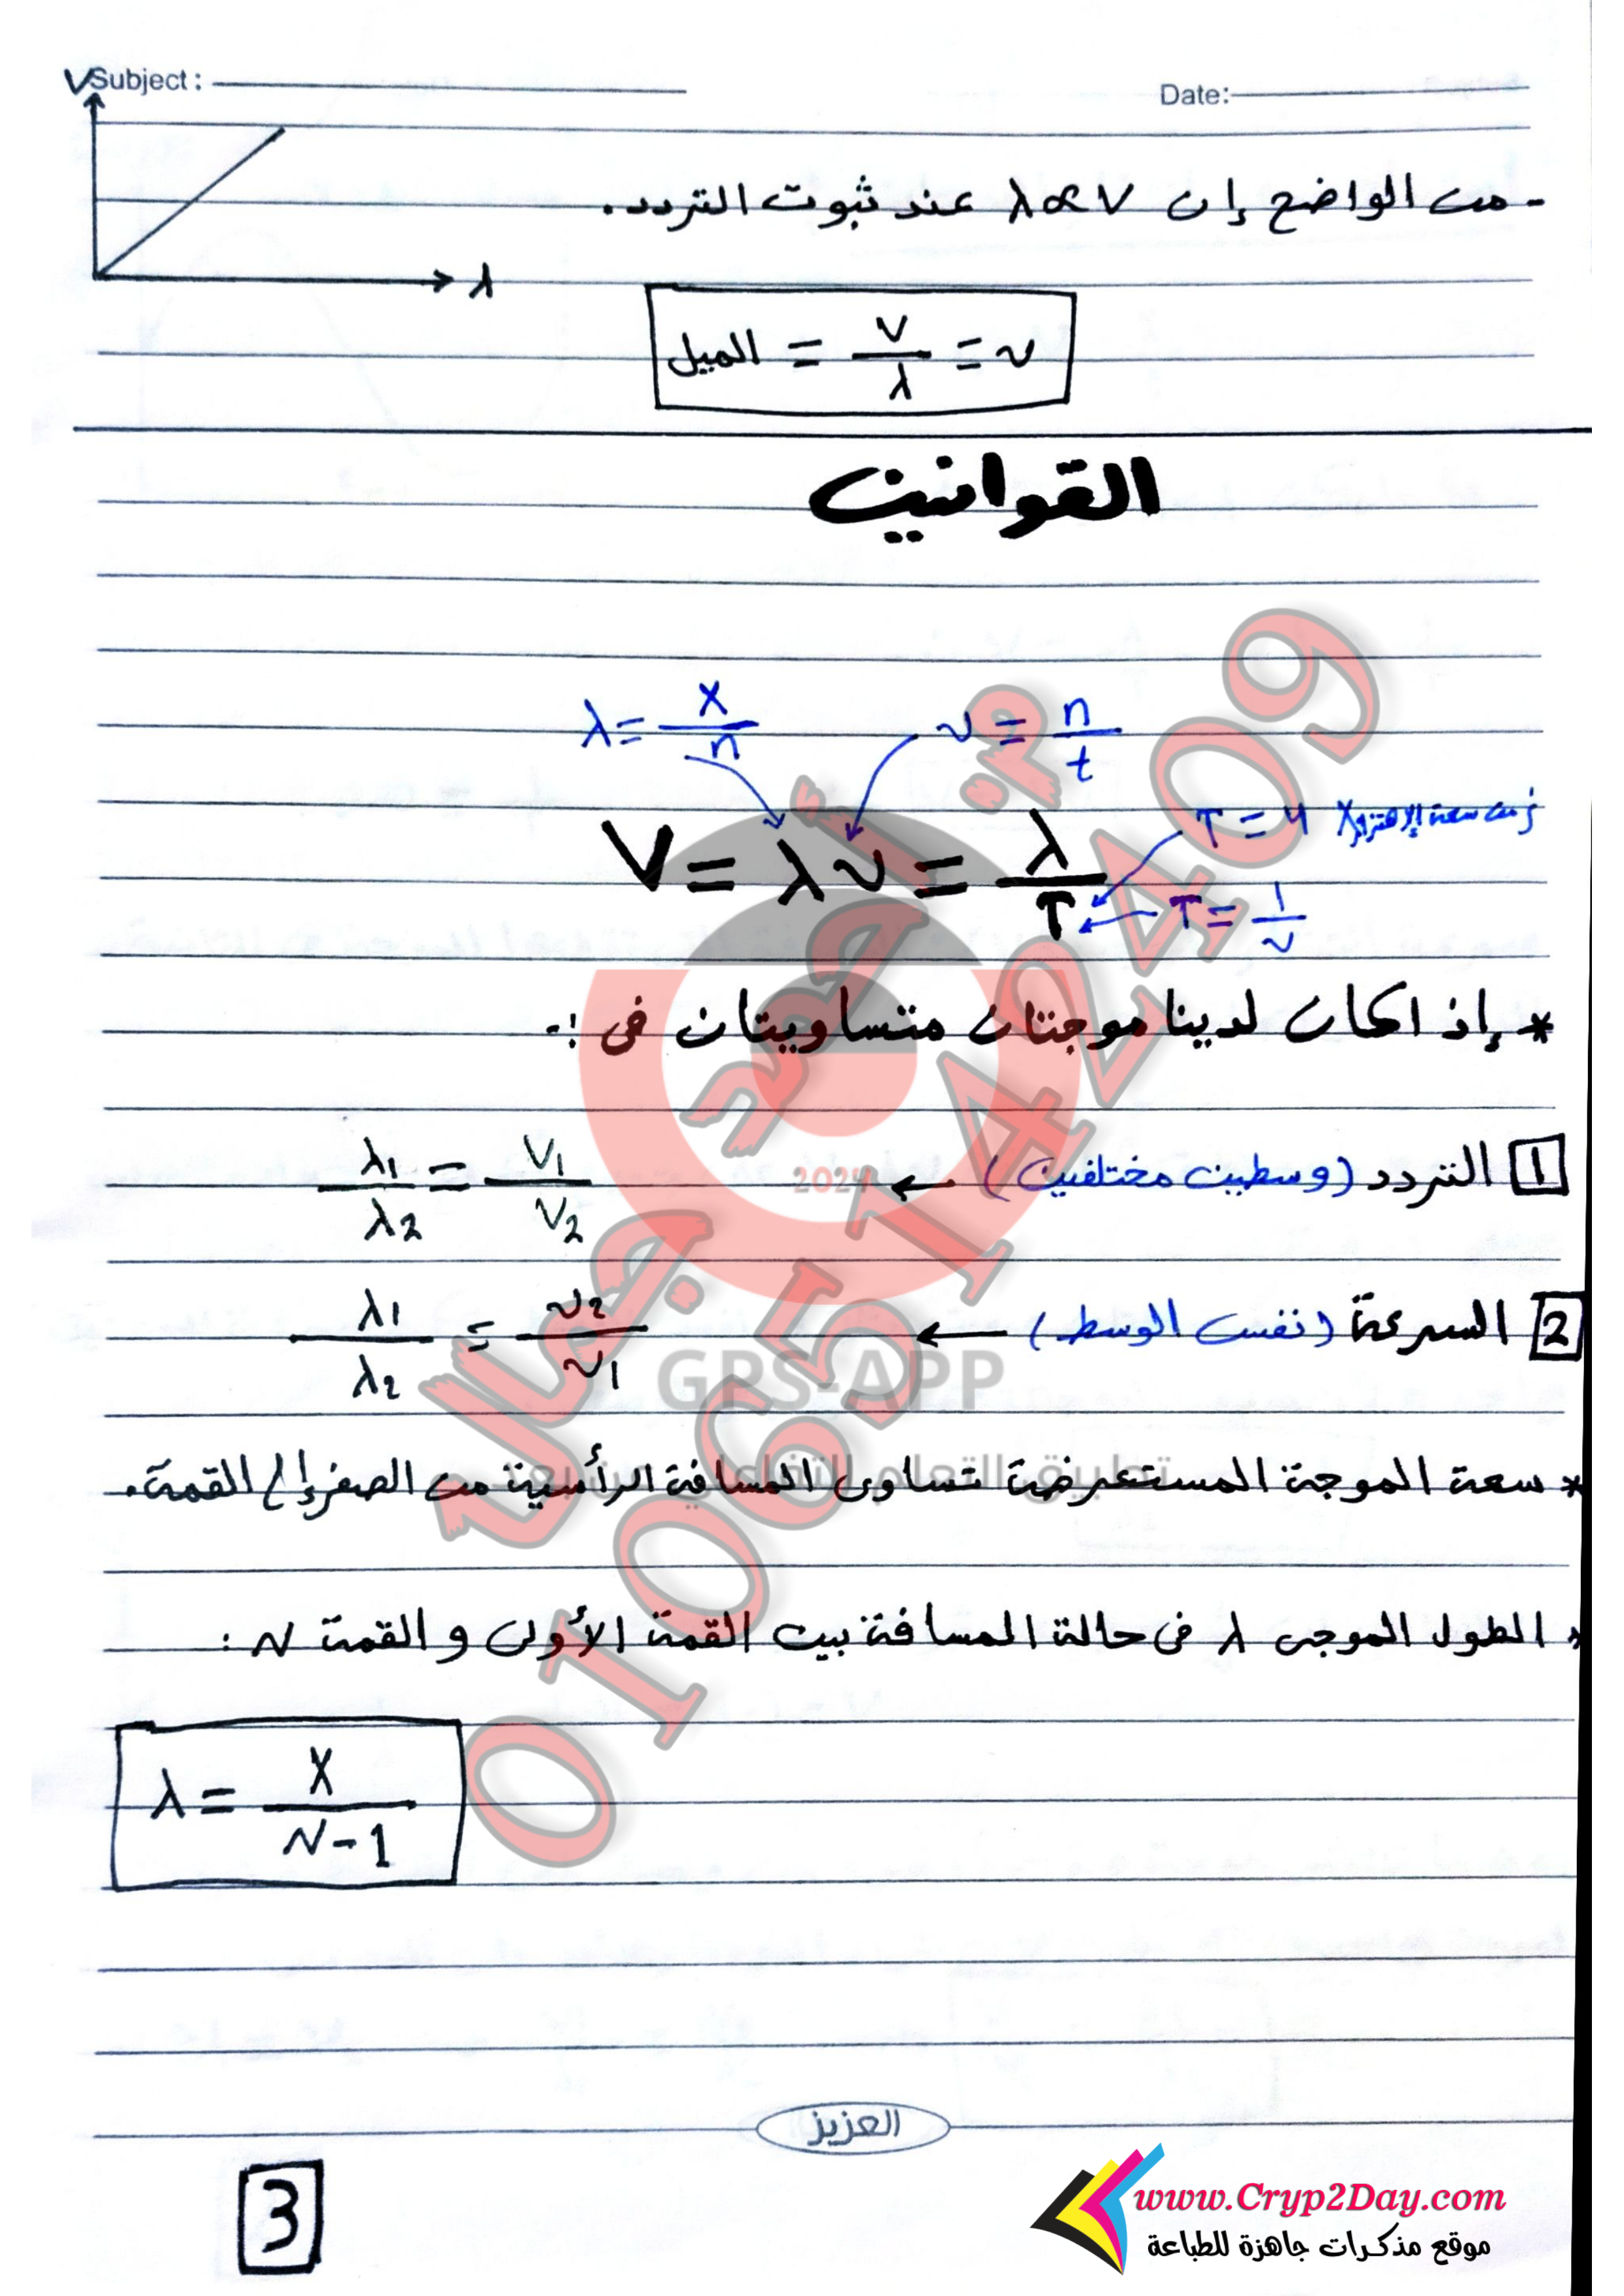 Subject:
Date:
V
λ
- من الواضح إن λ∝V عند ثبوت التردد.
الميل = V/λ = ν
القوانين
λ = x/n
ν = n/t
V = λν = λ/T
T = 4 × زمن سعة الإهتزازة
T = 1/ν
* إذا كان لدينا موجتان متساويتان فى :-
1 التردد (وسطين مختلفين) ← λ1/λ2 = V1/V2
2 السرعة (نفس الوسط) ← λ1/λ2 = ν2/ν1
* سعة الموجة المستعرضة تساوى المسافة الرأسية من الصفر إلى القمة.
* الطول الموجى λ فى حالة المسافة بين القمة الأولى و القمة N :
λ = X/N-1
2024
GPS-APP
01065142409
العزيز
3
www.Cryp2Day.com
موقع مذكرات جاهزة للطباعة